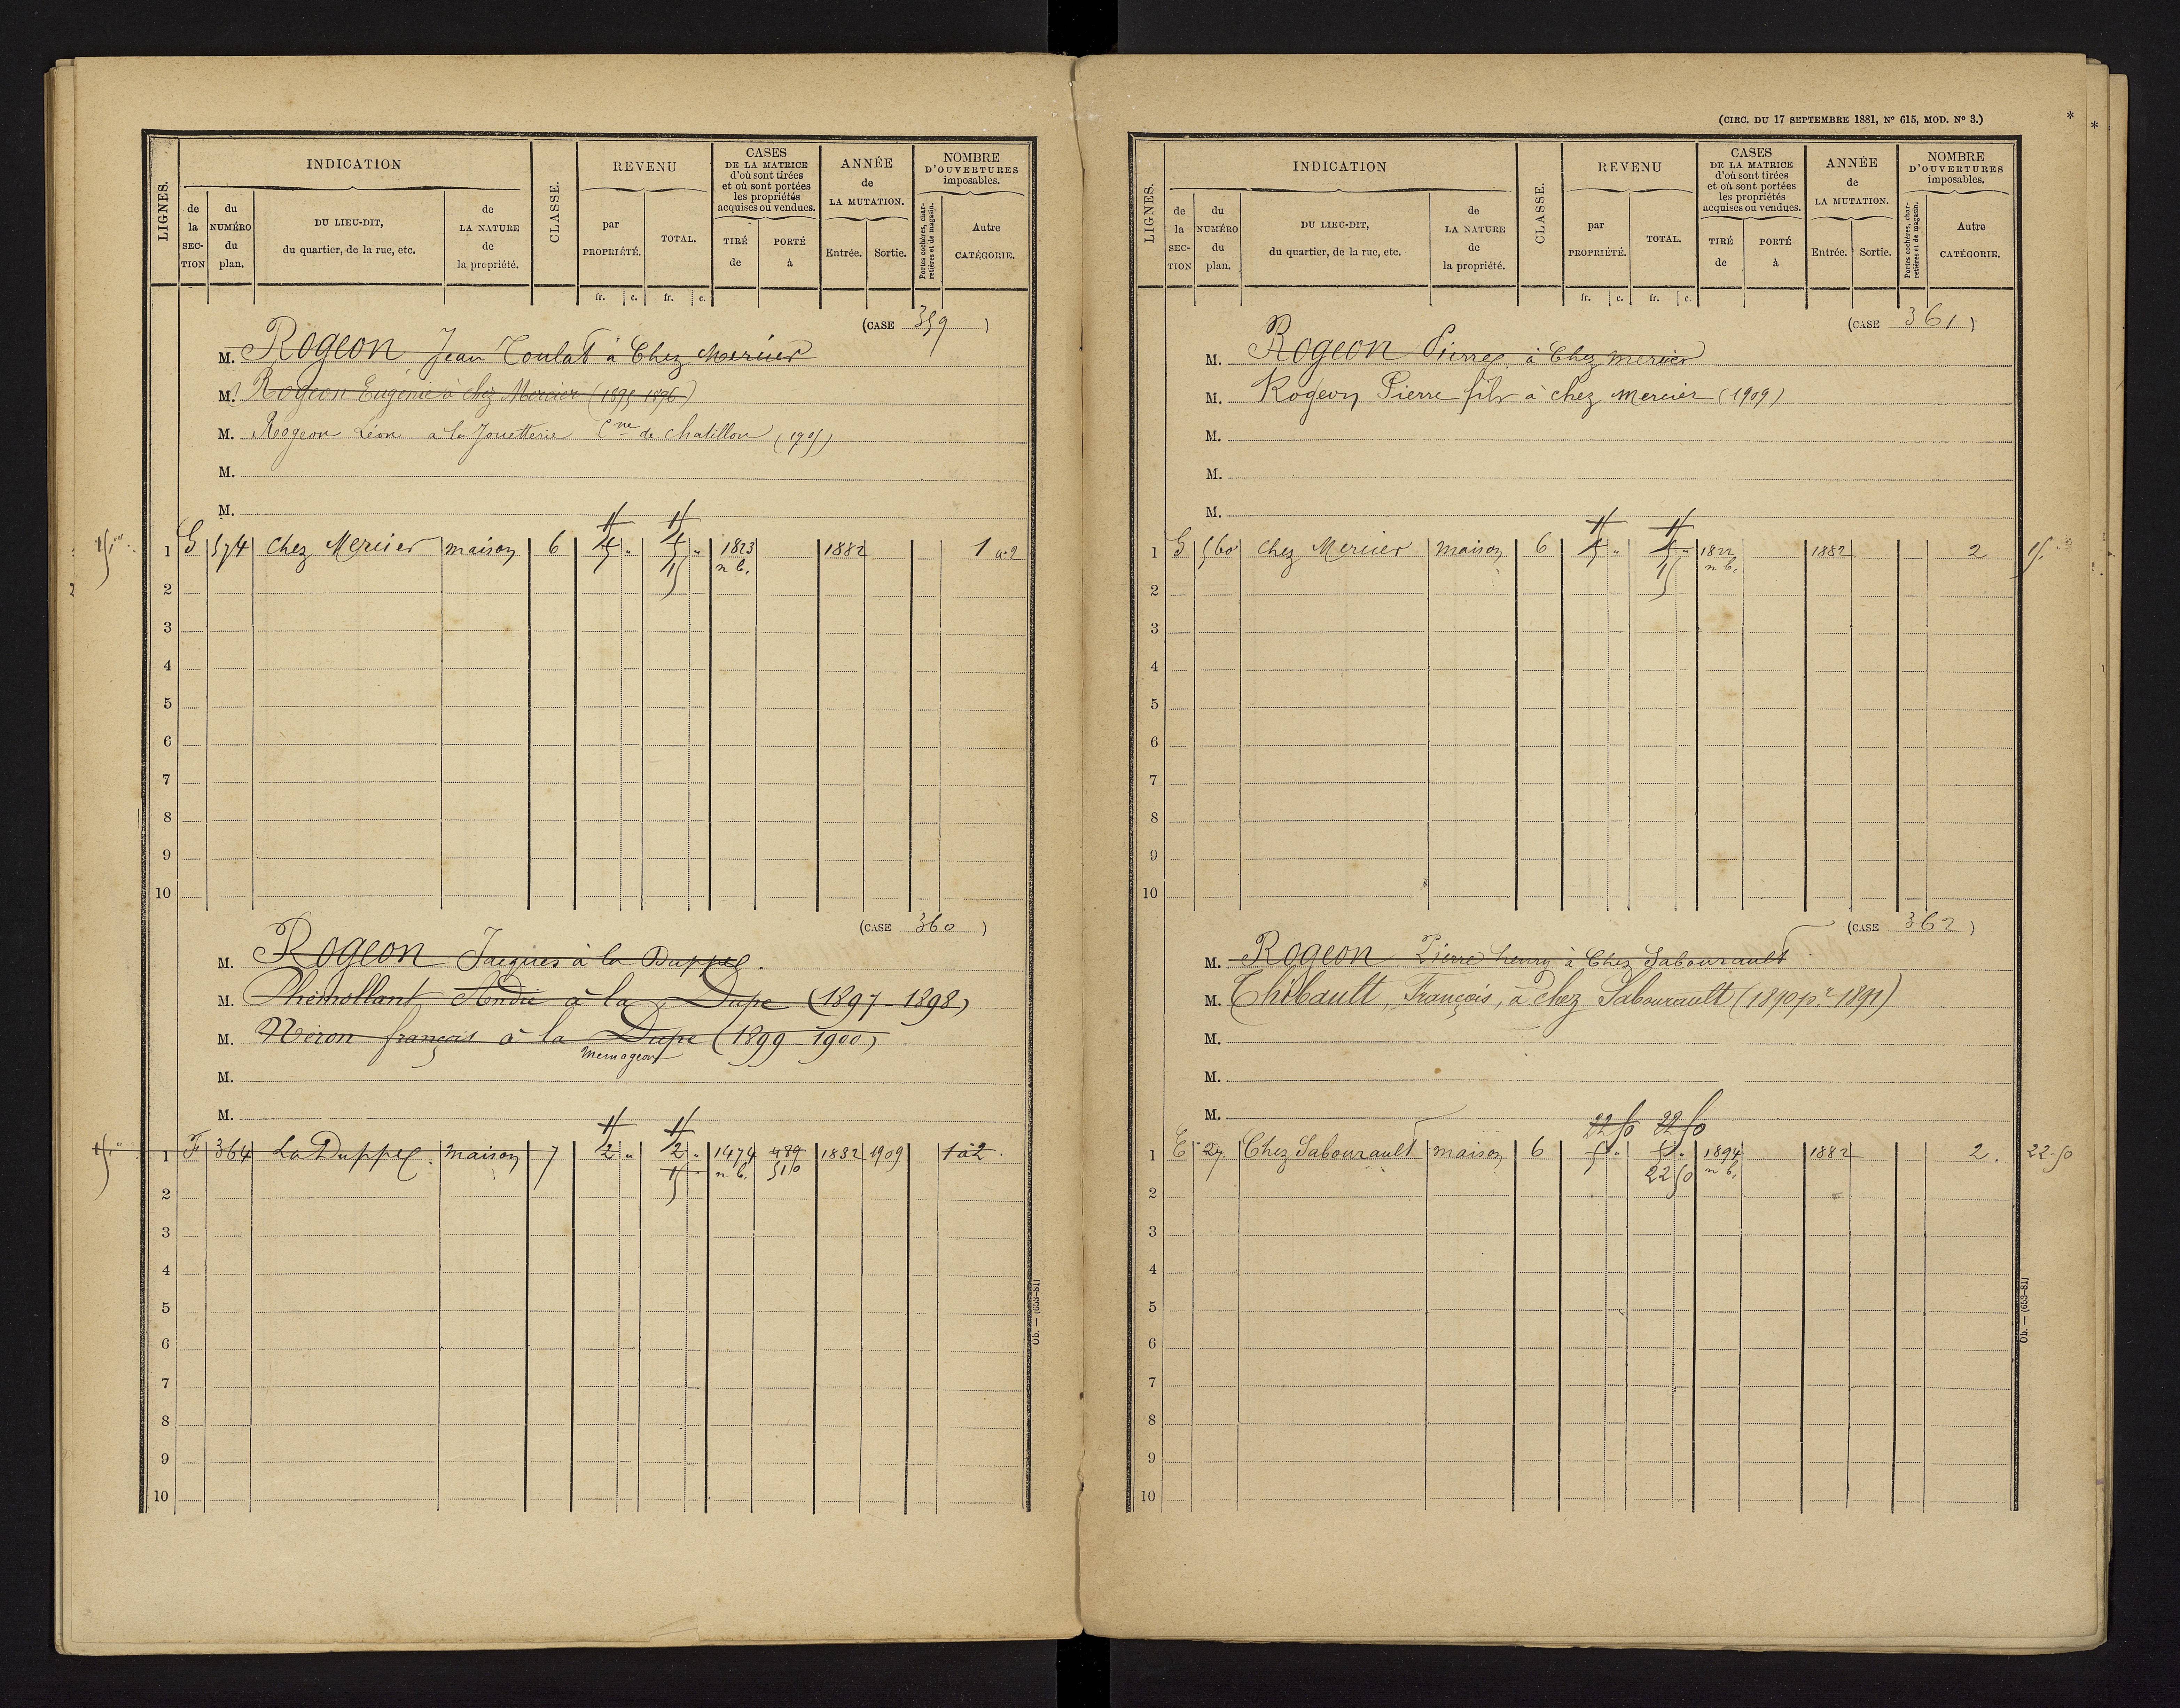 LIGNES.
INDICATION
de la SECTION
du NUMÉRO du plan.
DU LIEU-DIT, du quartier, de la rue, etc.
de LA NATURE de la propriété.
CLASSE.
REVENU
par PROPRIÉTÉ.
TOTAL.
fr. c. fr. c.
CASES DE LA MATRICE d'où sont tirées et où sont portées les propriétés acquises ou vendues.
TIRÉ de
PORTÉ à
ANNÉE de LA MUTATION.
Entrée. Sortie.
NOMBRE D'OUVERTURES imposables.
Portes cochères, charretières et de magasin.
Autre CATÉGORIE.
(CASE 359)
M. Rogeon Jean Coulat à Chez Mercier
M. Rogeon Eugénie à chez Mercier (1895-1896)
M. Rogeon Léon à la Jouetterie Cne de Chatillon (1905)
M.
M.
1 G 574 Chez Mercier maison 6 1823 n b. 1882 1 à 2
2
3
4
5
6
7
8
9
10
(CASE 360)
M. Rogeon Jacques à la Duppe.
M. André à la Dupe (1897-1898)
M. Néron françois à la Dupe (1899-1900)
M.
M.
1 F 364 La Duppe. maison 7 2 " 2 " 1474 n b. 479 510 1882 1909 1 à 2.
15
2
3
4
5
6
7
8
9
10
Ob. — (653-81)
(CIRC. DU 17 SEPTEMBRE 1881, N° 615, MOD. N° 3.)
LIGNES.
INDICATION
de la SECTION
du NUMÉRO du plan.
DU LIEU-DIT, du quartier, de la rue, etc.
de LA NATURE de la propriété.
CLASSE.
REVENU
par PROPRIÉTÉ.
TOTAL.
fr. c. fr. c.
CASES DE LA MATRICE d'où sont tirées et où sont portées les propriétés acquises ou vendues.
TIRÉ de
PORTÉ à
ANNÉE de LA MUTATION.
Entrée. Sortie.
NOMBRE D'OUVERTURES imposables.
Portes cochères, charretières et de magasin.
Autre CATÉGORIE.
(CASE 361)
M. Rogeon Pierre à Chez mercier
M. Rogeon Pierre fils à chez Mercier (1909)
M.
M.
M.
1 G 560 Chez Mercier maison 6 1822 n b. 1882 2 15
2
3
4
5
6
7
8
9
10
(CASE 362)
M. Rogeon Pierre henry à Chez Sabourault
M. Thibault, François, à chez Sabourault (1890 pr 1891)
M.
M.
M.
22 50 22 50
1 E 27 Chez Sabourault maison 6 5 " 5 " 1894 n b. 1882 2. 22-50
22 50
2
3
4
5
6
7
8
9
10
Ob. — (653-81)